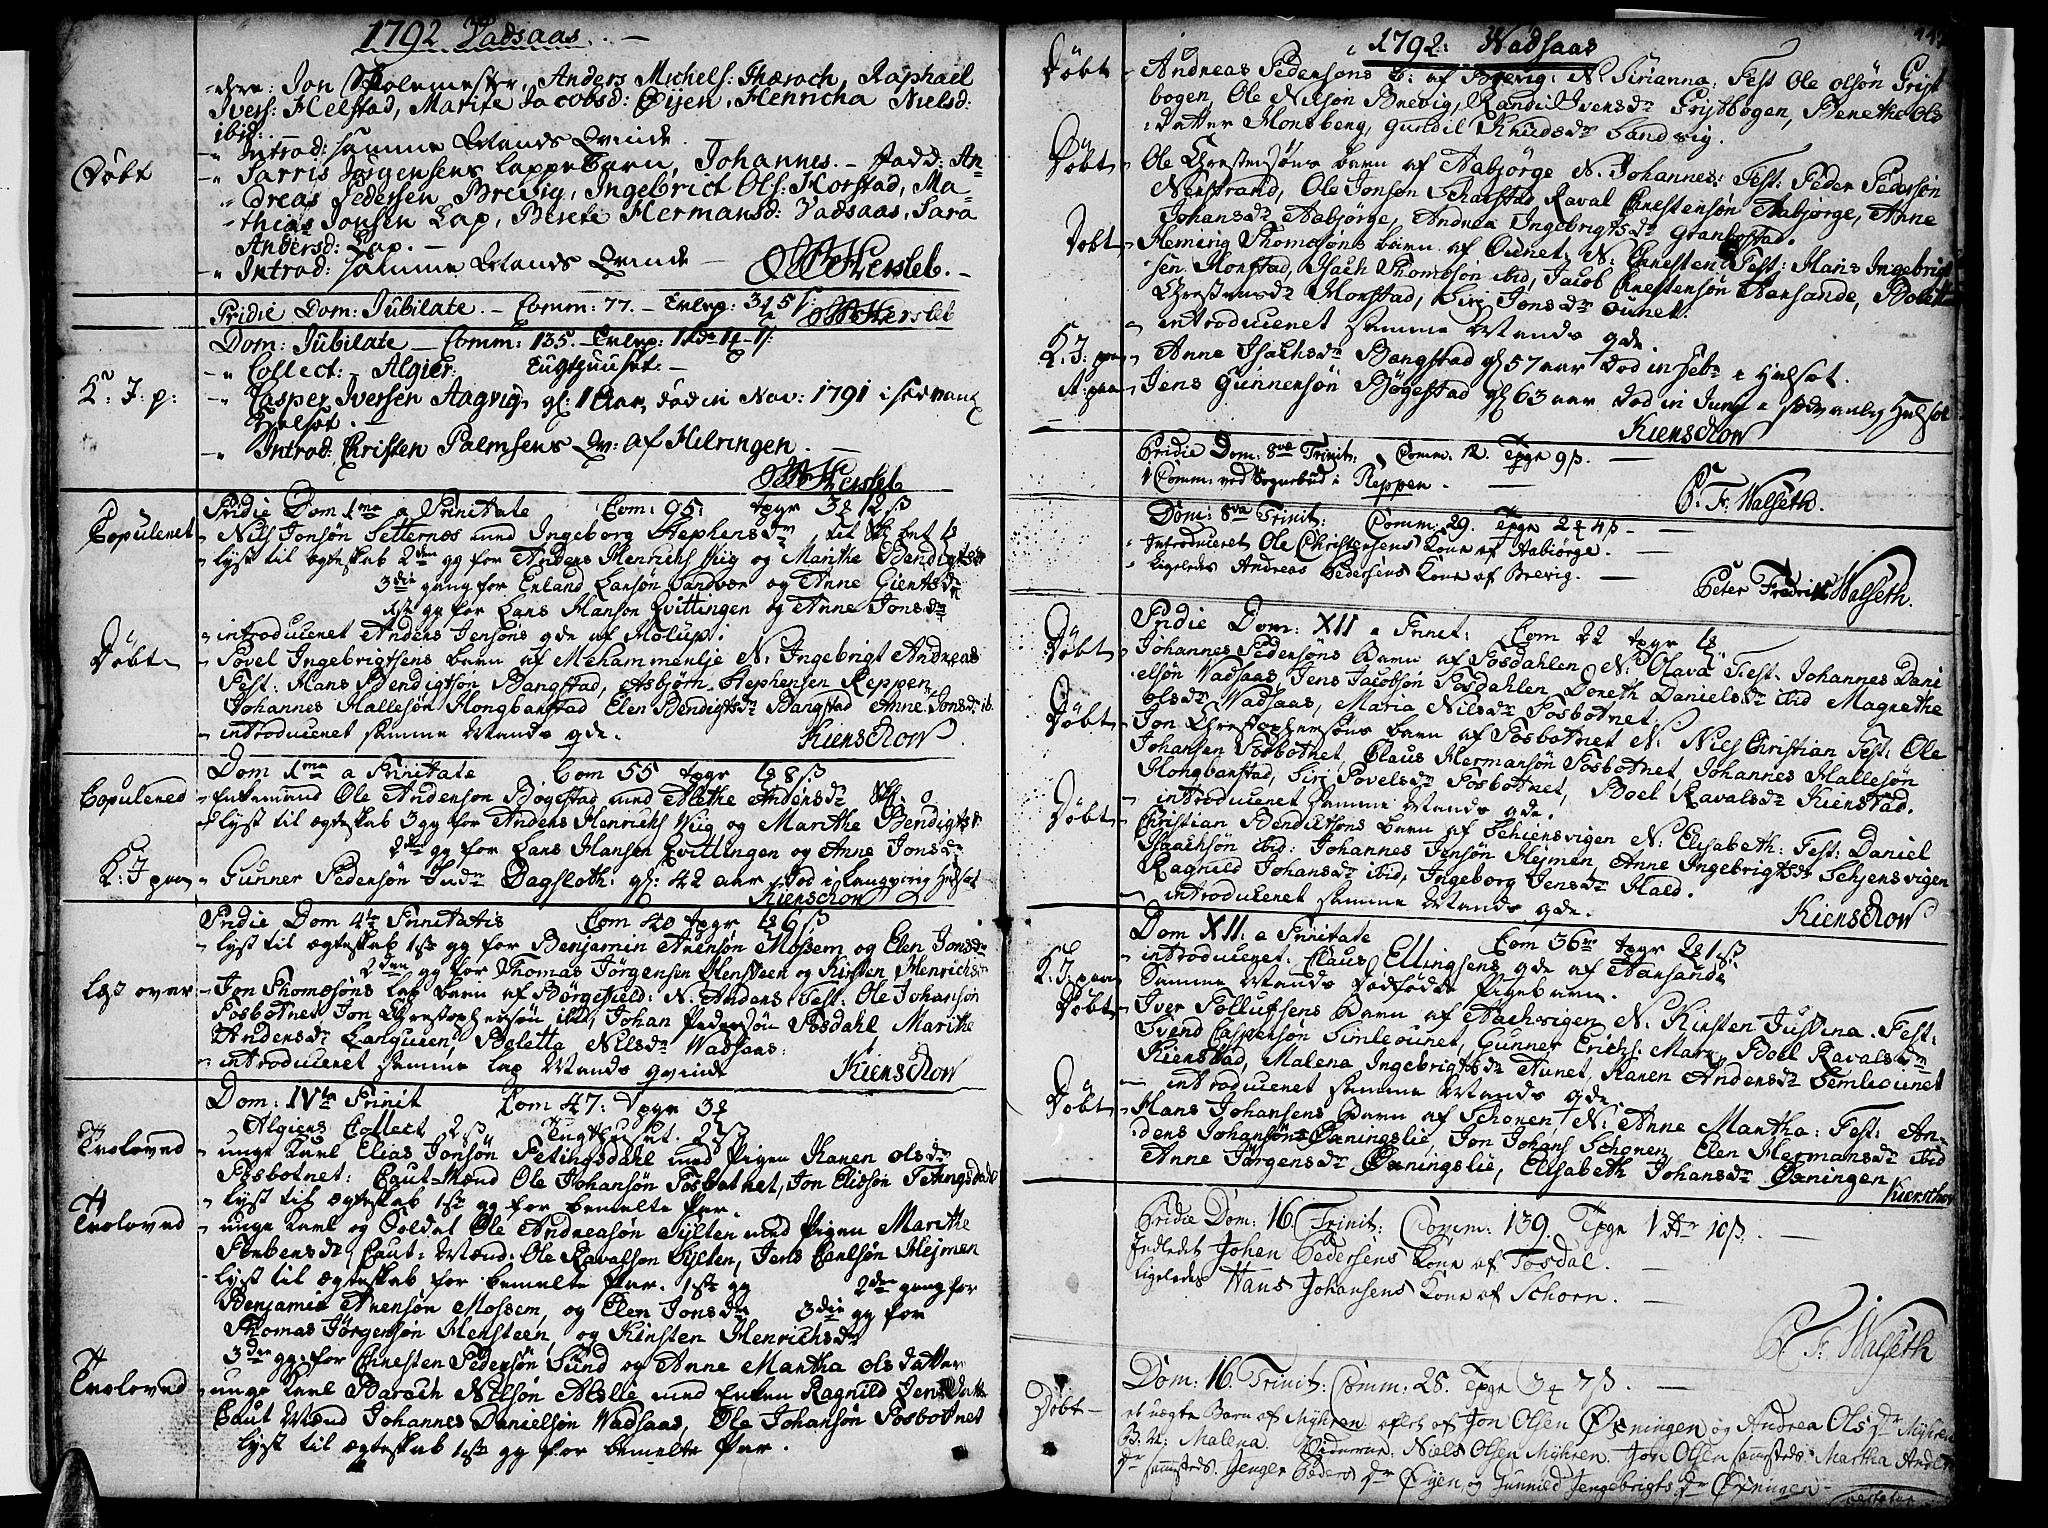 1792 Vadsaas.
dere: Jon Skolemester, Anders Michels: Thærach, Raphael
Ivers: Helstad, Marite Jacobsd: Øijen, Henricha Niels d:
ibid:
Introd: samme Mands Qvinde.
Døbt
Sarris Jørgensens Lappebarn, Johannes. Fadd: An-
dreas Pedersen Brevig, Ingebrict Ols: Horstad, Ma-
thias Jonsen Lap, Berete Hermansd: Vadsaas, Sara
Andersd: Lap.
Introd: samme Mands Qvinde
Herslet.
Pridie Dom: Jubilate. Comm: 77.
Herslet
Dom: Jubilate Comm: 135.
Collect: Algier: Tugthuuset.
K: J: p:
Casper Iversen Aagvig, gl: 1 Aar, død in Nov: 1791 i
Helsot.
Introd: Christen Palmsens Qv: af Helringen.
Herslet
Pridie Dom 1ma a Trinitate Com: 95: tpgr 3 12 ß
Copuleret
Nils Jonsøn Setternæs med Ingeborg Stephensdr
lyst til ægteskab 2den gg for Anders Henrichs Viig og Marithe Bendigtsdr
3die gang for Erland Larsøn Sandvær og Anne Giertsdr
1ste gg for Lars Hanson Qvittingen og Anne Jonsdr
introduceret Anders Jensøns qde af Molup.
Døbt
Povel Ingebrigtsens barn af Mehammerlje N: Ingebrigt Andreas
Test: Hans Bendigtsøn Bangstad, Asbjørn Stephensen Reppen,
Johannes Hallesøn Hongbarstad Elen Bendigtsdr Bangstad Anne Jonsd: ib.
introduceret samme Mands qde.
Kienschow
Dom 1ma a Trinitate Com 55 tpgr 1 8 ß
Copulered
Enkemand Ole Anderson Bøgestad med Alethe Andersdr
lyst til ægteskab 3 gg for Anders Henrichs Viig og Marithe Bendigtsdr
2den gg for Lars Hansen Qvittingen og Anne Jonsdr
K: J paa
Gunner Pedersøn Indr Dagsloth: gl: 42 aar, død i langvarig Helsot
Kienschow
Pridie Dom 4te Trinitatis Com 40 tpgr 1 6 ß
lyst til ægteskab 1ste gg for Benjamin Arensøn Mossem og Elen Jonsdr
2den gg for Thomas Jørgensen Hensteen og Kirsten Henrichsdr
Læst over
Jon Thomesøns lap barn af Børgefield: N: Anders Test: Ole Johansøn
Fosbotnet Jon Christophersøn ibid, Johan Pedersøn Fosdahl Marithe
Andersdr, Beletta Nilsdr Wadsaas:
introduceret samme lap Mands qvinde
Kienschow
Dom: IVta Trinit Com 47: tpgr 3
Algiers Collect 2 ß Tugthuset. 2 ß
Troloved
unge Karl Elias Jonsøn Fetingsdahl med Pigen Karen olsdr
Fosbotnet: Caut-Mænd Ole Johansøn Fosbotnet, Jon Eliesøn Fetingsdahl
lyst til ægteskab 1ste gg for bemelte Par.
Troloved
unge Karl og Soldat Ole Andreasøn Sylten med Pigen Marithe
Torbensdr, Caut: Mænd: Ole Ravalson Sylten, Jens Carlsøn Hejmen
lyst til ægteskab for bemelte Par. 1ste gg 2den gang for
Benjamin Arensøn Mossem, og Elen Jonsdr 3die gg for
Thomas Jørgensøn Hensteen, og Kirsten Henrichsdr
3die gg: for Christen Pedersøn Sund og Anne Martha olsdatter
Troloved
unge Karl Baroch Nilsøn Molle med Enken Ragnild Jens datter
Caut Mænd Johannes Danielsøn Wadsaas, Ole Johansøn Fosbotnet
lyst til ægteskab 1ste gg for bemelte Par.
1792: Wadsaas
Døbt
Andreas Pedersøns B: af Brevig: N. Sirianna. Test Ole olsøn Fryt
bogen, Ole Nilsøn Brevig, Randi Ivensdr Frytbogen, Benethe Ols
datter Monsberg, Gundil Knudsdr Sandvig.
Døbt
Ole Christensøns barn af Aabjørge N. Johannes: Test: Peder Pedersøn
Nerstrand, Ole Jonsøn Schatstad Raval Christensøn Aabjørge, Anne
Johansdr Aabjørge, Andrea Ingebrigtsdr Granbostad.
Døbt
Heming Thomasøns barn af Ounet, N: Christen: Test: Hans Ingebrigt
sen. Horstad, Isach Thomsøn ibid, Jacob Christensøn Aarsande, Bolett
Christensdr Horstad, Siri Jonsdr Ounet.
introduceret samme Mands qde.
K: J: paa
Anne Isachsdr Bangstad gl 57 aar død in febr Helsot.
Jens Gunnersøn Bøgestad gl 63 aar død in Juni sædvanlig Helsot
Kienschow
Pridie Dom: 8va Trinit: Comm: 12. Tpgr 9 ß.
1 Comm: ved Sognebud i Reppen.
P. Fr. Walseth.
Dom: 8va Trinit: Comm: 29. Tpgr 2 4 ß
Introduceret Ole Christensens Kone af Aabiørge.
ligeledes Andreas Pedersens Kone af Brevig.
Peter Fredrik Walseth.
Pridie Dom: XII a Trinit: Com 22 tpgr 1
Døbt
Johannes Pedersøns Barn af Fosdahlen, N: Olava Test: Johannes Dani
elsøn Vadsaas, Jens Jacobsøn Fosdahlen, Doreth Danielsdr ibid Magrethe
olsdr Vadsaas, Maria Nilsdr Fosbotnet.
Døbt
Jon Christophersøns barn af Fosbotnet N: Nils Christian Test: Ole
Johansen Fosbotnet Claus Hermansøn Fosbotnet, Johannes Hallesøn
Hongbarstad, Siri Povelsdr Fosbotnet, Boel Ravalsdr Kienstad.
introduceret samme Mands qde.
Døbt
Christian Bendictsøns barn af Sehiensvigen N: Elisabeth: Test: Daniel
Isaachsøn ibid: Johannes Jensøn Hejmen Anne Ingebrigtsdr Sehjensvigen
Ragnild Johansdr ibid, Ingeborg Jensdr Hald.
introduceret samme Mands qde.
Kienschow
Dom XII: a Trinitate Com 36 tpgr 2 1 ß
introduceret: Claus Ellingsens qde af Aarsande
K: J: paa
Samme Mands dødfødte Pigebarn.
Døbt
Iver Pollufsens Barn af Aachvigen N: Kirsten Justina. Test:
Svend Caspersøn Simleounet, Gunner Erichs: Marx, Boel Ravalsdr
Kienstad, Malena Ingebrigtsdr Aunet, Karen Andersdr Semleounet
introduceret samme Mands qde.
Døbt
Hans Johansens Barn af Schoren, N: Anne Martha: Test: An-
ders Johansøn Øxningslie, Jon Johans Schoren, Elen Hermansdr ibid
Anne Jørgensdr Øxningslie, Elisabeth Johansdr Øxningen
Kienschow
Pridie Dom: 16. Trinit: Comm: 139. Tpgr 1 dr 10 ß.
Indledet Johen Pedersens Kone af Fosdal.
ligeledes Hans Johansens Kone af Schorn.
P. Fr. Walseth
Dom: 16. Trinit: Comm: 28. Tpgr 3 7 ß.
Døbt
et uægte Barn af Myhren avlet af Jon Olsen Øxningen og Andrea Ols dr Myhren
B: N: Malena. Fadderne: Niels Olsen Myhren. Jon Olsen sammesteds. Martha Anders
dr sammesteds. Jenger Peders dr Øijen og Gunnild Jengebrigts dr Øxningen